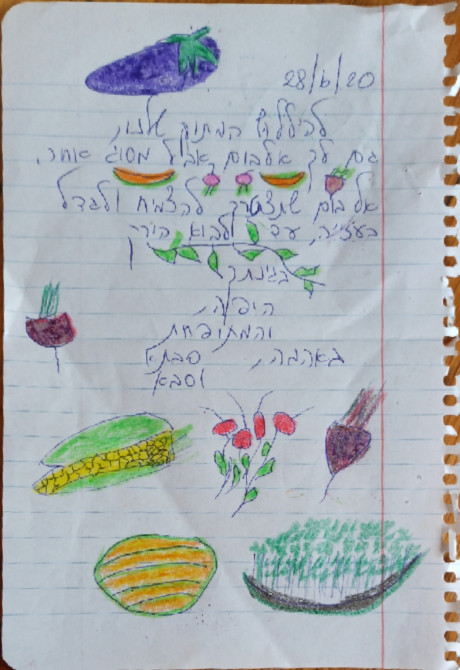 28/6/20
המתוק שלנו,
גם לך אלבום, אבל מסוג אחר,
אלבום שתצטרך להצמיח ולגדל
עד לבוא הירק
בגינתך
היפה,
והמטופחת
באהבה, סבתא
וסבא